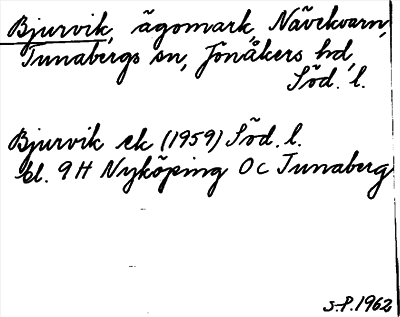 Bjurvik, ägomark, Nävekvarn,
Tunabergs sn, Jönåkers hd,
Söd. l.
Bjurvik ek (1959) Söd. l.
bl. 9H Nyköping OC Tunaberg
S.P. 1962